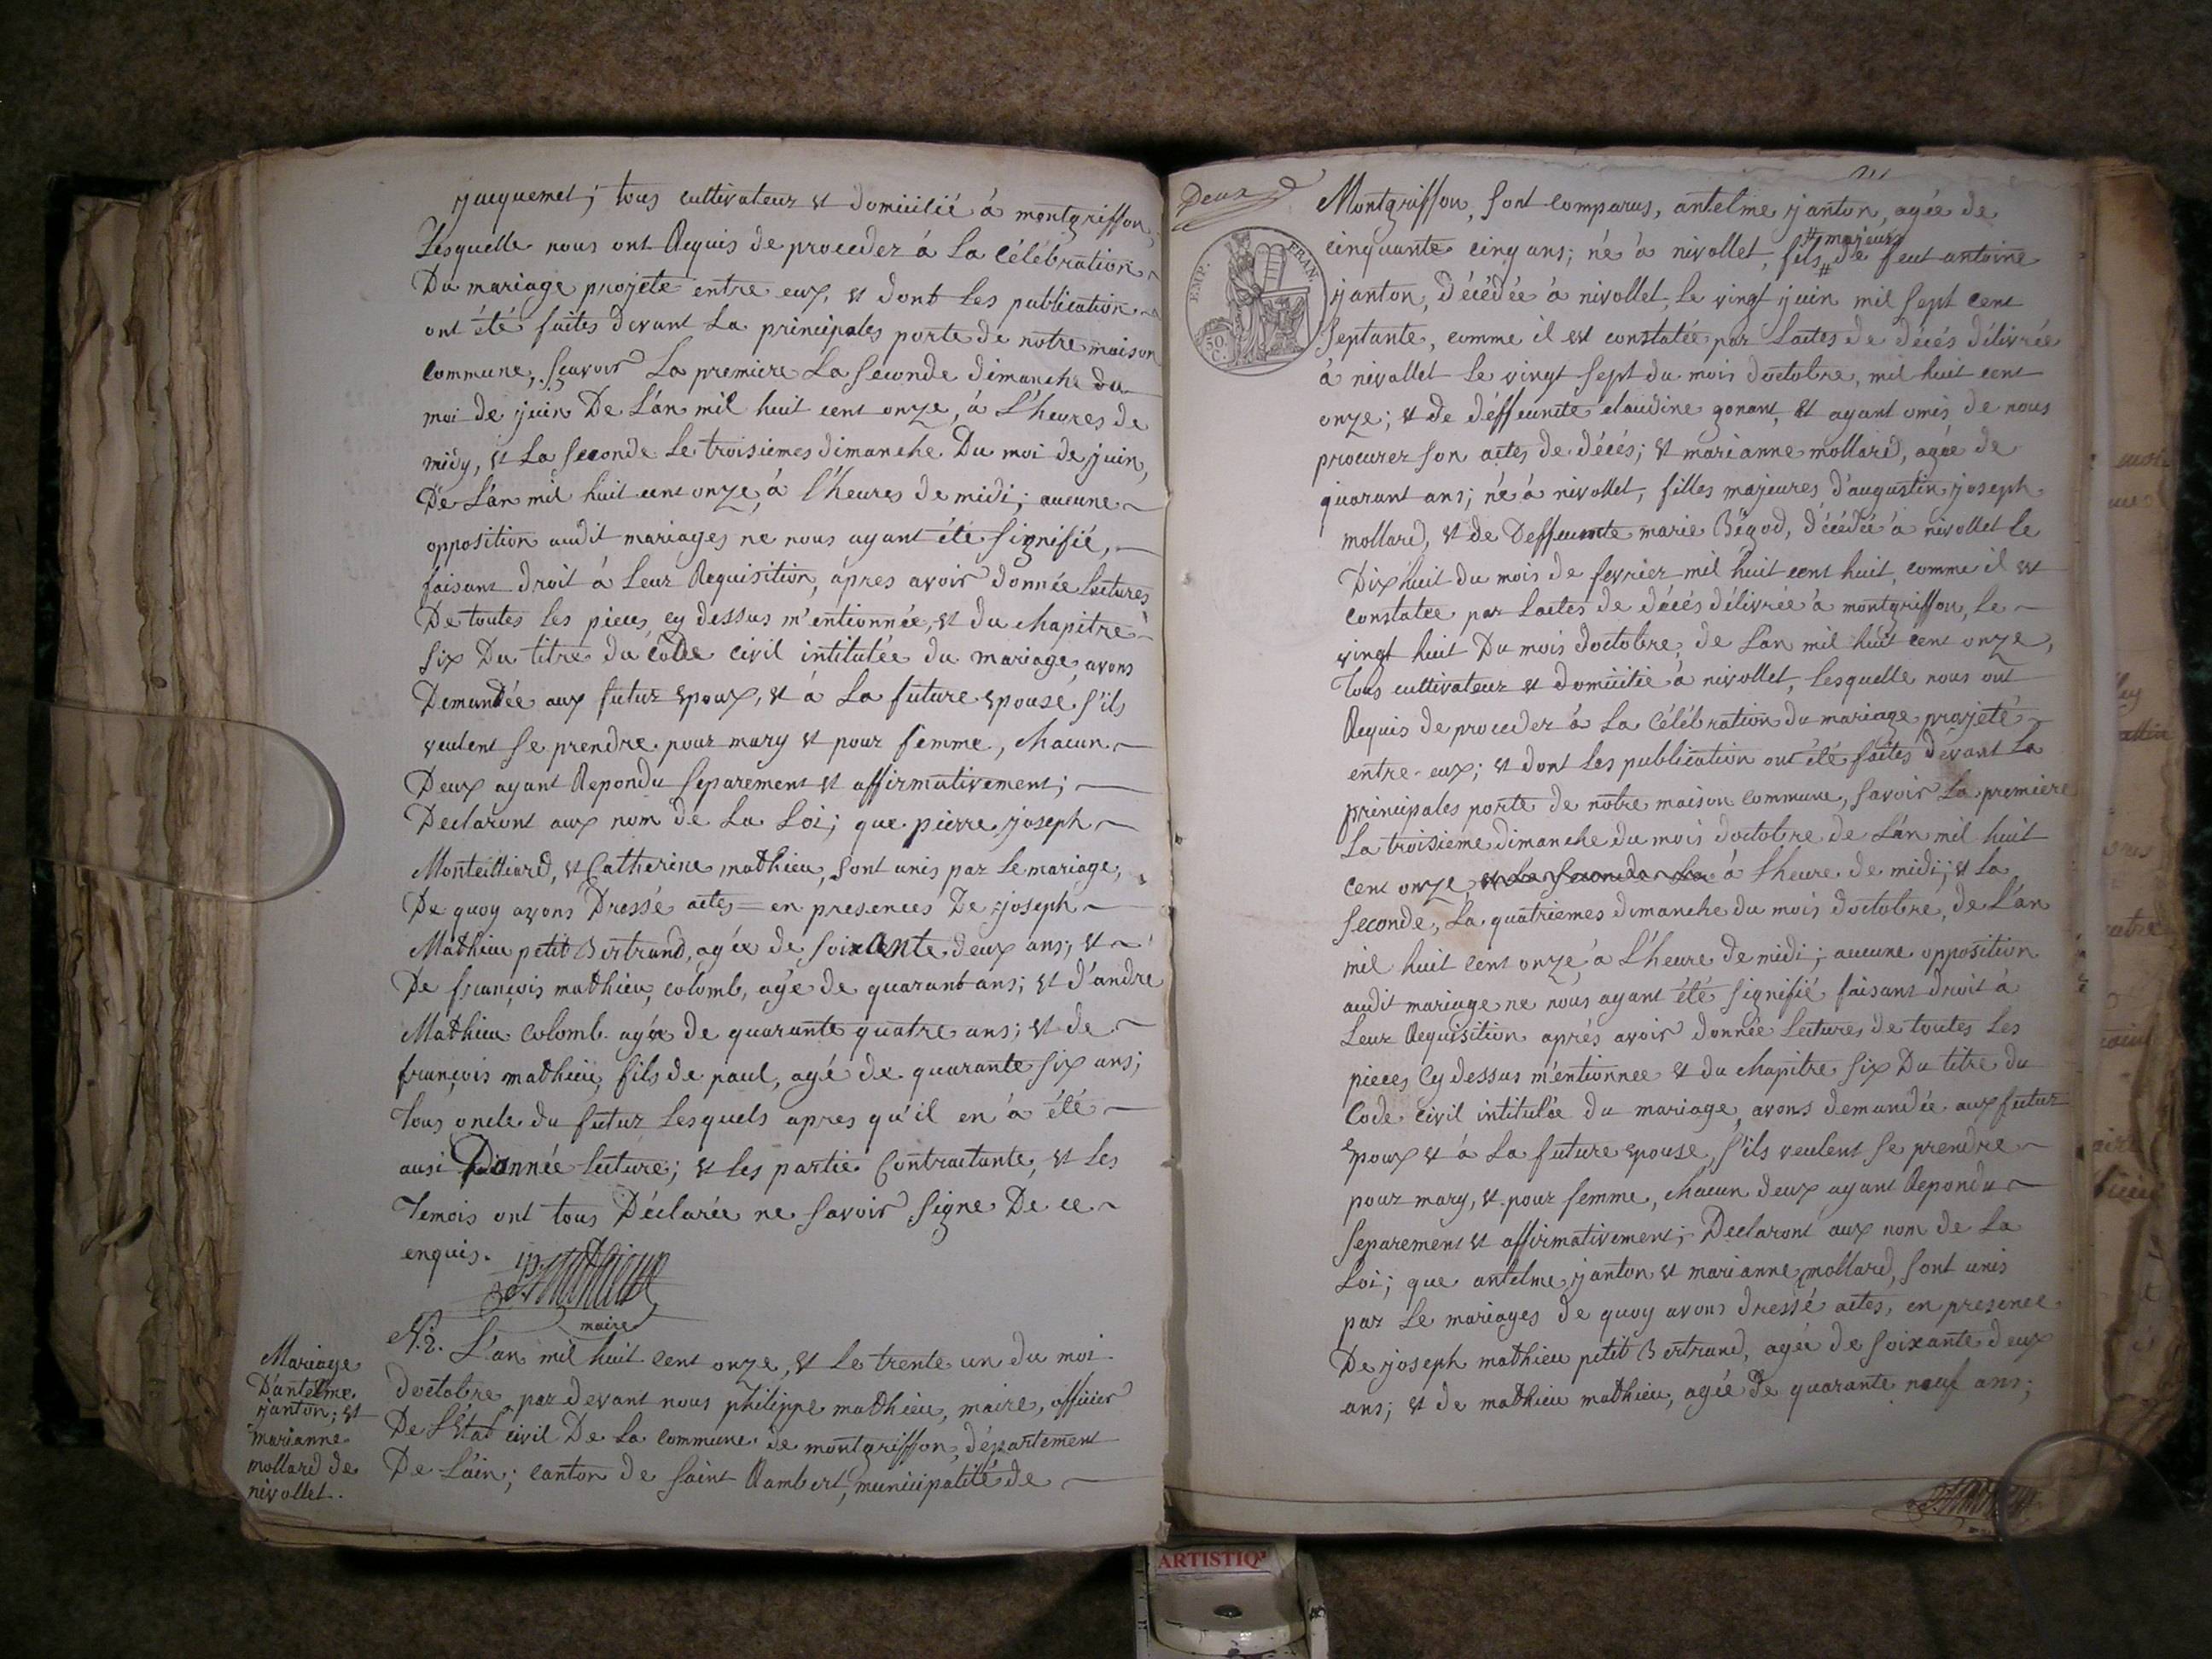 jacquemet; tous cultivateur et domicilié à montgriffon,
Lesquelle nous ont Requis de proceder à La Célébration
Du mariage projeté entre eux, et dont Les publication
ont été faites devant La principales porte de notre maison
Commune, sçavoir La premiere La seconde dimanche du
moi de juin De L'an mil huit cent onze, à L'heures de
midy, et La seconde Le troisiemes dimanche Du moi de juin,
De L'an mil huit cent onze, à l'heures de midi; aucune
opposition audit mariages ne nous ayant été signifié,
faisant droit à Leur Requisition, après avoir donnée Lectures
De toutes Les pieces cy dessus m'entionnée, et du chapitre
Six Du titre du Code civil intitutée du mariage, avons
Demandée aux futur epoux, et à La future epouse, s'ils
veulent se prendre pour mary et pour femme, chacun
Deux ayant Repondu separement et affirmativement;
Declaront aux nom de La Loi; que pierre joseph
Monteilliard, et Catherine mathieu, sont unis par Le mariage,
De quoy avons Dressé actes = en presences De joseph
Mathieu petit Bertrand, agée de soixante deux ans; et
De françois mathieu, colomb, agé de quarant ans; et d'andre
Mathieu Colomb. agée de quarante quatre ans; et de
françois mathieu, fils de paul, agé de quarante six ans;
Tous oncle du futur Lesquels apres qu'il en à été
ausi Donnée Lecture; et les partie Contractante, et Les
Temois ont tous Déclarée ne savoir signe De ce
enquis.
P. Mathieu
maire
Mariage
D'antelme
janton; et
marianne
mollard de
nivollet.
N. 2. L'an mil huit cent onze, et Le trente un du moi
doctobre, par devant nous philippe mathieu, maire, officier
De L'État civil De La Commune de montgriffon, département
De L'ain; canton de saint Rambert, municipalité de
Deux
EMP. FRAN.
50
C.
Montgriffon, sont comparus, antelme janton, agée de
cinquante cinq ans; né à nivollet, fils # de feut antoine
# majeur
janton, décédée à nivollet, Le vingt juin mil sept cent
septante, comme il est constatée par Lactes de décés délivrée
à nivollet Le vingt sept du mois doctobre, mil huit cent
onze; et de déffeunte claudine gonant, et ayant omis de nous
procurer son actes de décés; et marianne mollard, agée de
quarant ans; né à nivollet, filles majeures d'augustin joseph
mollard, et de Deffeunte marie Bégod, décédée à nivollet Le
Dix huit du mois de fevrier mil huit cent huit, comme il et
constatée par Lactes de décés délivrée à montgriffon, Le
vingt huit Du mois doctobre, de L'an mil huit cent onze,
Tous cultivateur et domicilié à nivollet, Lesquelle nous ont
Requis de proceder à La Célébration du mariage projeté
entre eux; et dont Les publication ont été faites devant La
principales porte de notre maison Commune, savoir La premiere
La troisieme dimanche du mois doctobre de L'an mil huit
cent onze et La seconde La à L'heure de midi; et La
seconde, La quatriemes dimanche du mois doctobre, de L'an
mil huit cent onze, à L'heure de midi; aucune opposition
audit mariage ne nous ayant été signifié faisant droit à
Leur Requisition aprés avoir donnée Lectures de toutes Les
pieces Cy dessus m'entionnee et du chapitre six Du titre du
Code civil intitulée du mariage, avons demandée aux futur
epoux et à La future epouse, s'ils veulent se prendre
pour mary, et pour femme, chacun deux ayant Repondu
separement et affirmativement; Declaront aux nom de La
Loi; que antelme janton et marianne mollard, sont unis
par Le mariages de quoy avons dressé actes, en presence
De joseph mathieu petit Bertrand, agée de soixante deux
ans; et de mathieu mathieu, agée de quarante neuf ans;
ARTISTIQ